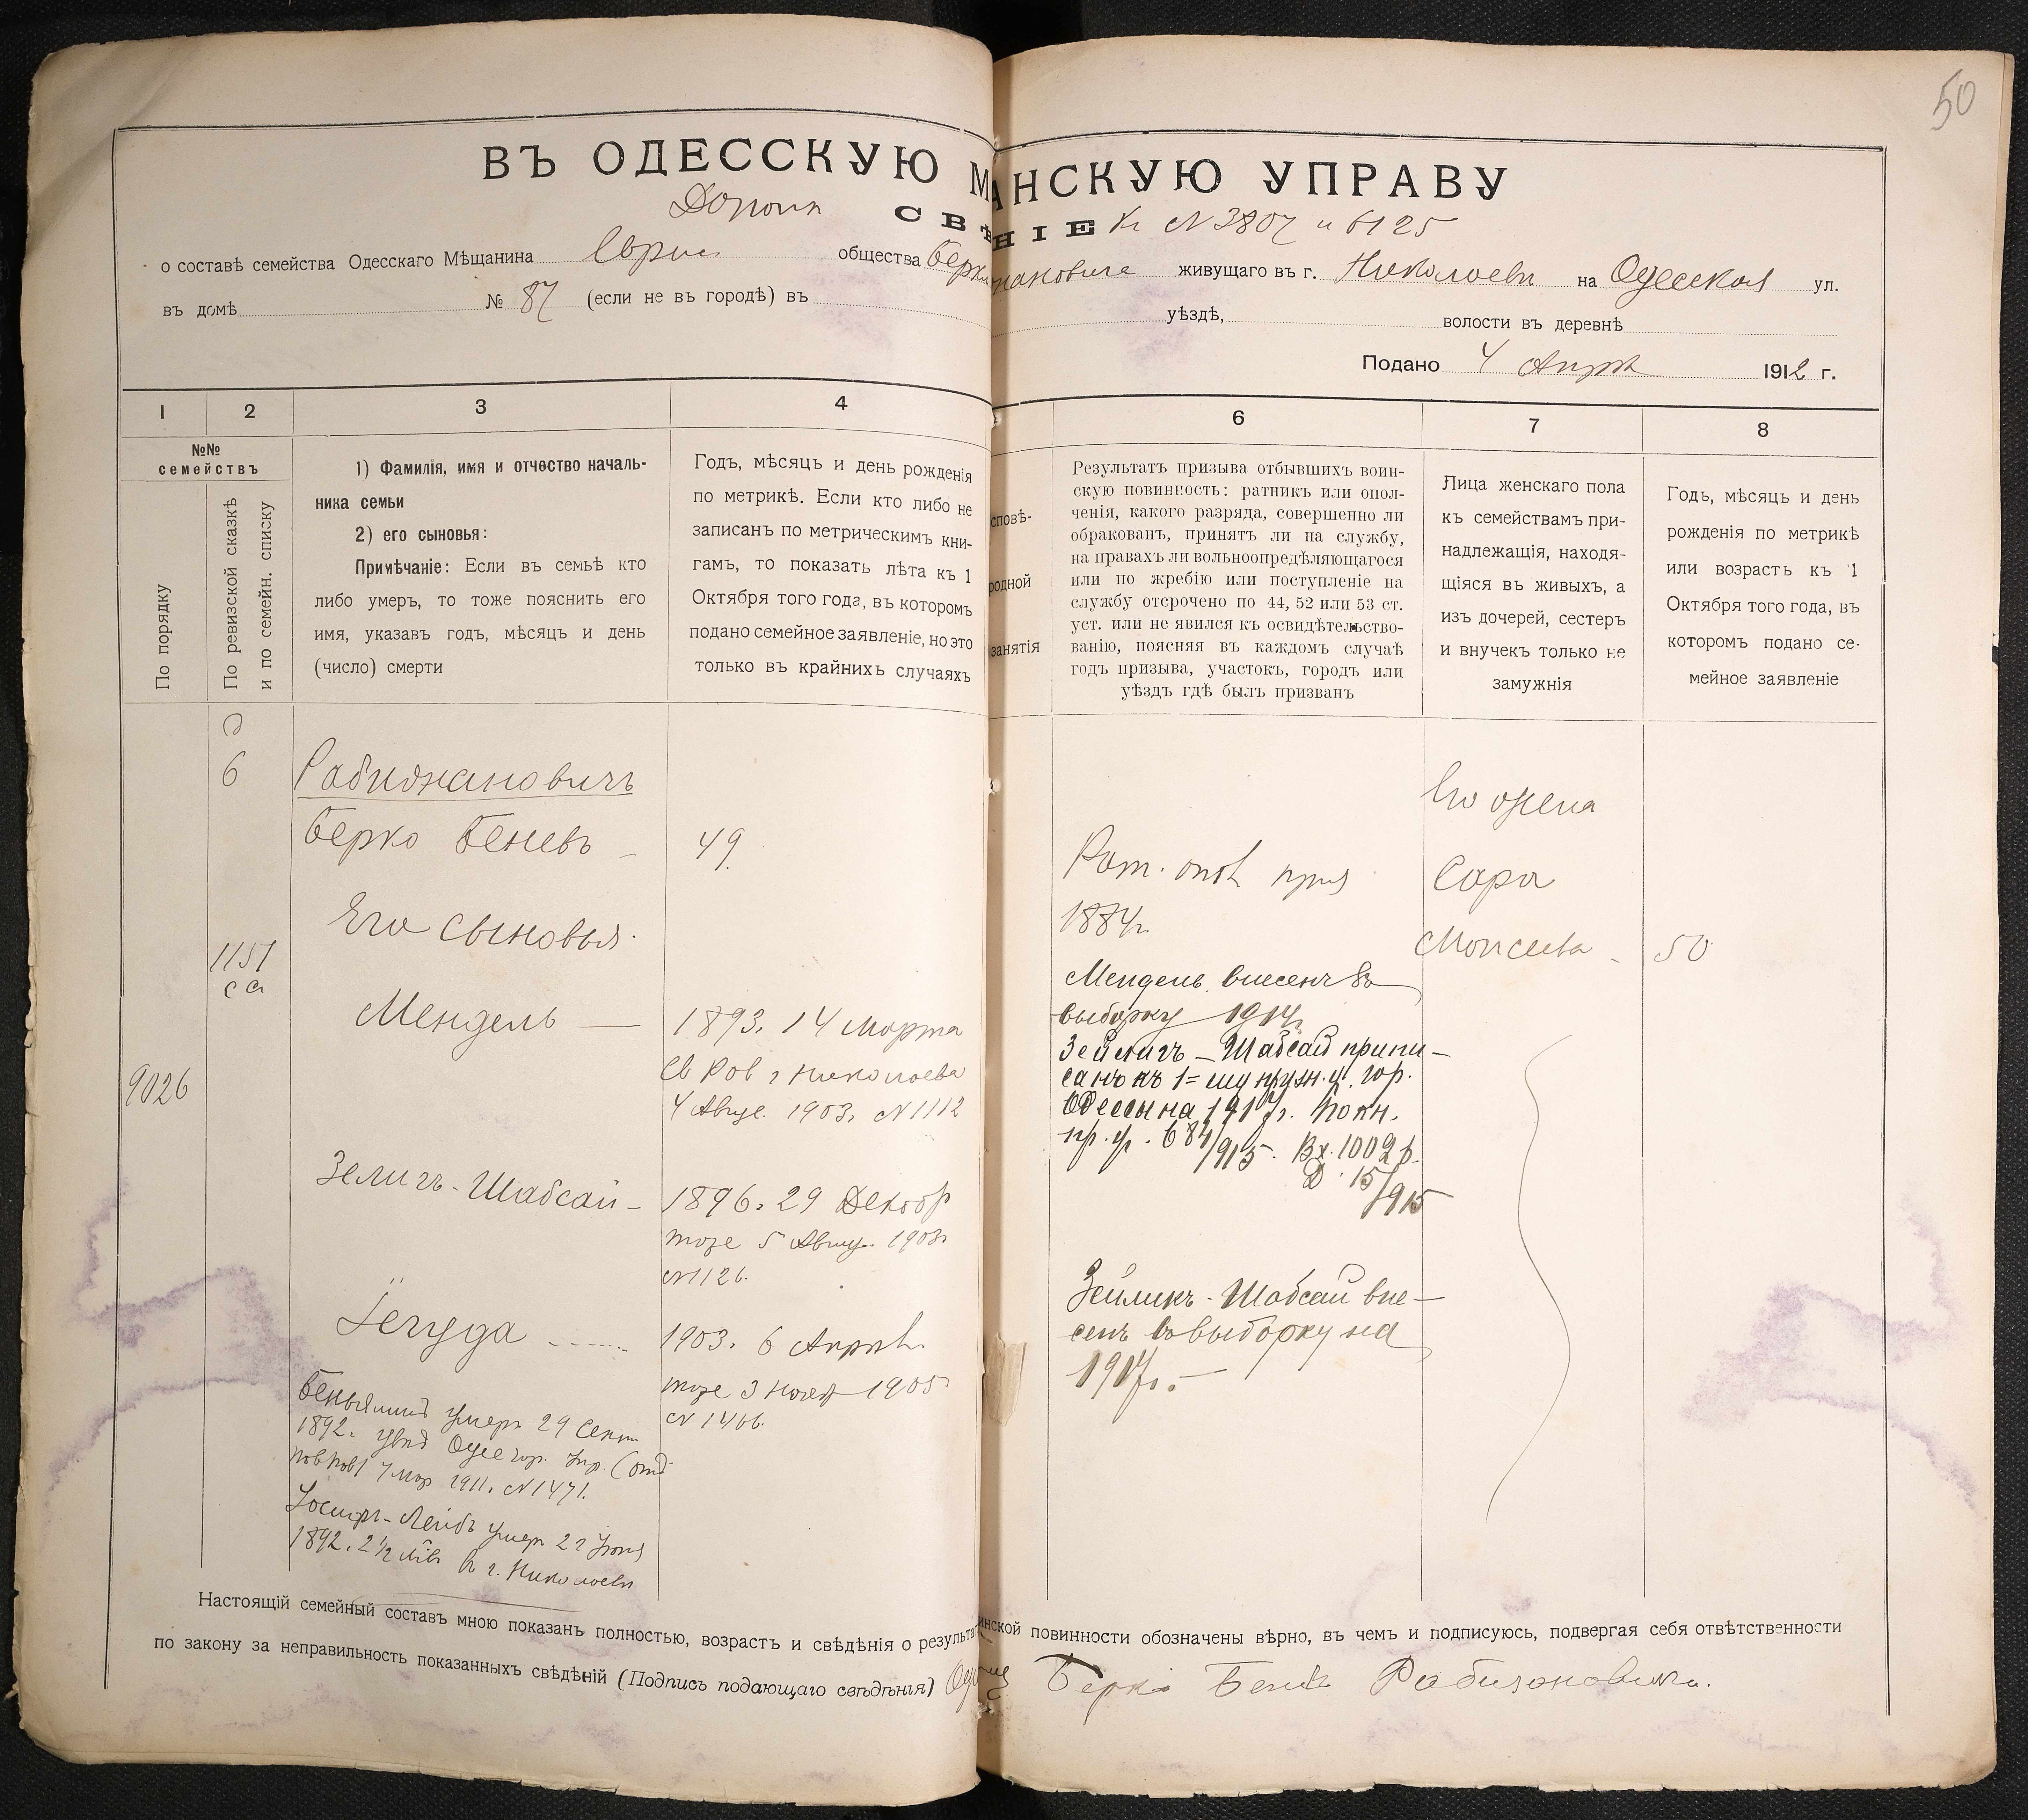 50
ВЪ ОДЕССКУЮ М АНСКУЮ УПРАВУ
Дополн СВѢ НІЕ къ № 3807 и 6125
о составѣ семейства Одесскаго Мѣщанина Еврей общества Берк жановича живущаго въ г. Николаевѣ на Одесской ул.
въ домѣ № 87 (если не въ городѣ) въ уѣздѣ, волости въ деревнѣ
Подано 4 Апрѣ 1912 г.
1 2 3 4 6 7 8
№№ семействъ
По порядку
По ревизской сказкѣ
и по семейн. списку
1) Фамилія, имя и отчество началь-
ника семьи
2) его сыновья:
Примѣчаніе: Если въ семьѣ кто
либо умеръ, то тоже пояснить его
имя, указавъ годъ, мѣсяцъ и день
(число) смерти
Годъ, мѣсяцъ и день рожденія
по метрикѣ. Если кто либо не
записанъ по метрическимъ кни-
гамъ, то показать лѣта къ 1
Октября того года, въ которомъ
подано семейное заявленіе, но это
только въ крайнихъ случаяхъ
сповѣ-
родной
занятія
Результатъ призыва отбывшихъ воин-
скую повинность: ратникъ или опол-
ченія, какого разряда, совершенно ли
обракованъ, принятъ ли на службу,
на правахъ ли вольноопредѣляющагося
или по жребію или поступленіе на
службу отсрочено по 44, 52 или 53 ст.
уст. или не явился къ освидѣтельство-
ванію, поясняя въ каждомъ случаѣ
годъ призыва, участокъ, городъ или
уѣздъ гдѣ былъ призванъ
Лица женскаго пола
къ семействамъ при-
надлежащія, находя-
щіяся въ живыхъ, а
изъ дочерей, сестеръ
и внучекъ только не
замужнія
Годъ, мѣсяцъ и день
рожденія по метрикѣ
или возрасть къ 1
Октября того года, въ
которомъ подано се-
мейное заявленіе
6
1151
са
9026
Рабижановичъ
Берко Беневъ - 49.
Его сыновья.
Мендель — 1893. 14 Марта
Св Рав г Николаева
4 Авгус. 1903. № 1112
Зелигъ-Шабсай - 1896. 29 Декабр
тоже 5 Авгу. 1903.
№ 1126.
Іегуда 1903. 6 Апрѣл
тоже 3 Нояб 1905
№ 1466.
Беньяминъ умеръ 29 Сент
1892. увѣд Одес гор. Упр. (отд
7 Мар 1911. № 1471.
Іосифъ-Лейбъ умеръ 22 Іюня
1892. 2½ лѣт въ г. Николаевѣ
Рат. опол приз
1884г.
Мендель внесенъ въ
выборку 1914г.
Зейлигъ-Шабсай припи-
санъ къ 1=му призн. уч. гор.
Одессы на 1917г. По кн.
пр. уч. 684/915. Вх. 1002 р.
Д. 15/915
Зейликъ-Шабсай вне-
сенъ въ выборку на
1917г.-
Его жена
Сара
Моисеева - 50
Настоящій семейный составъ мною показанъ полностью, возрастъ и свѣдѣнія о результат инской повинности обозначены вѣрно, въ чемъ и подписуюсь, подвергая себя отвѣтственности
по закону за неправильность показанныхъ свѣдѣній (Подпись подающаго свѣдѣнія) Берко Бене Рабизановичъ.